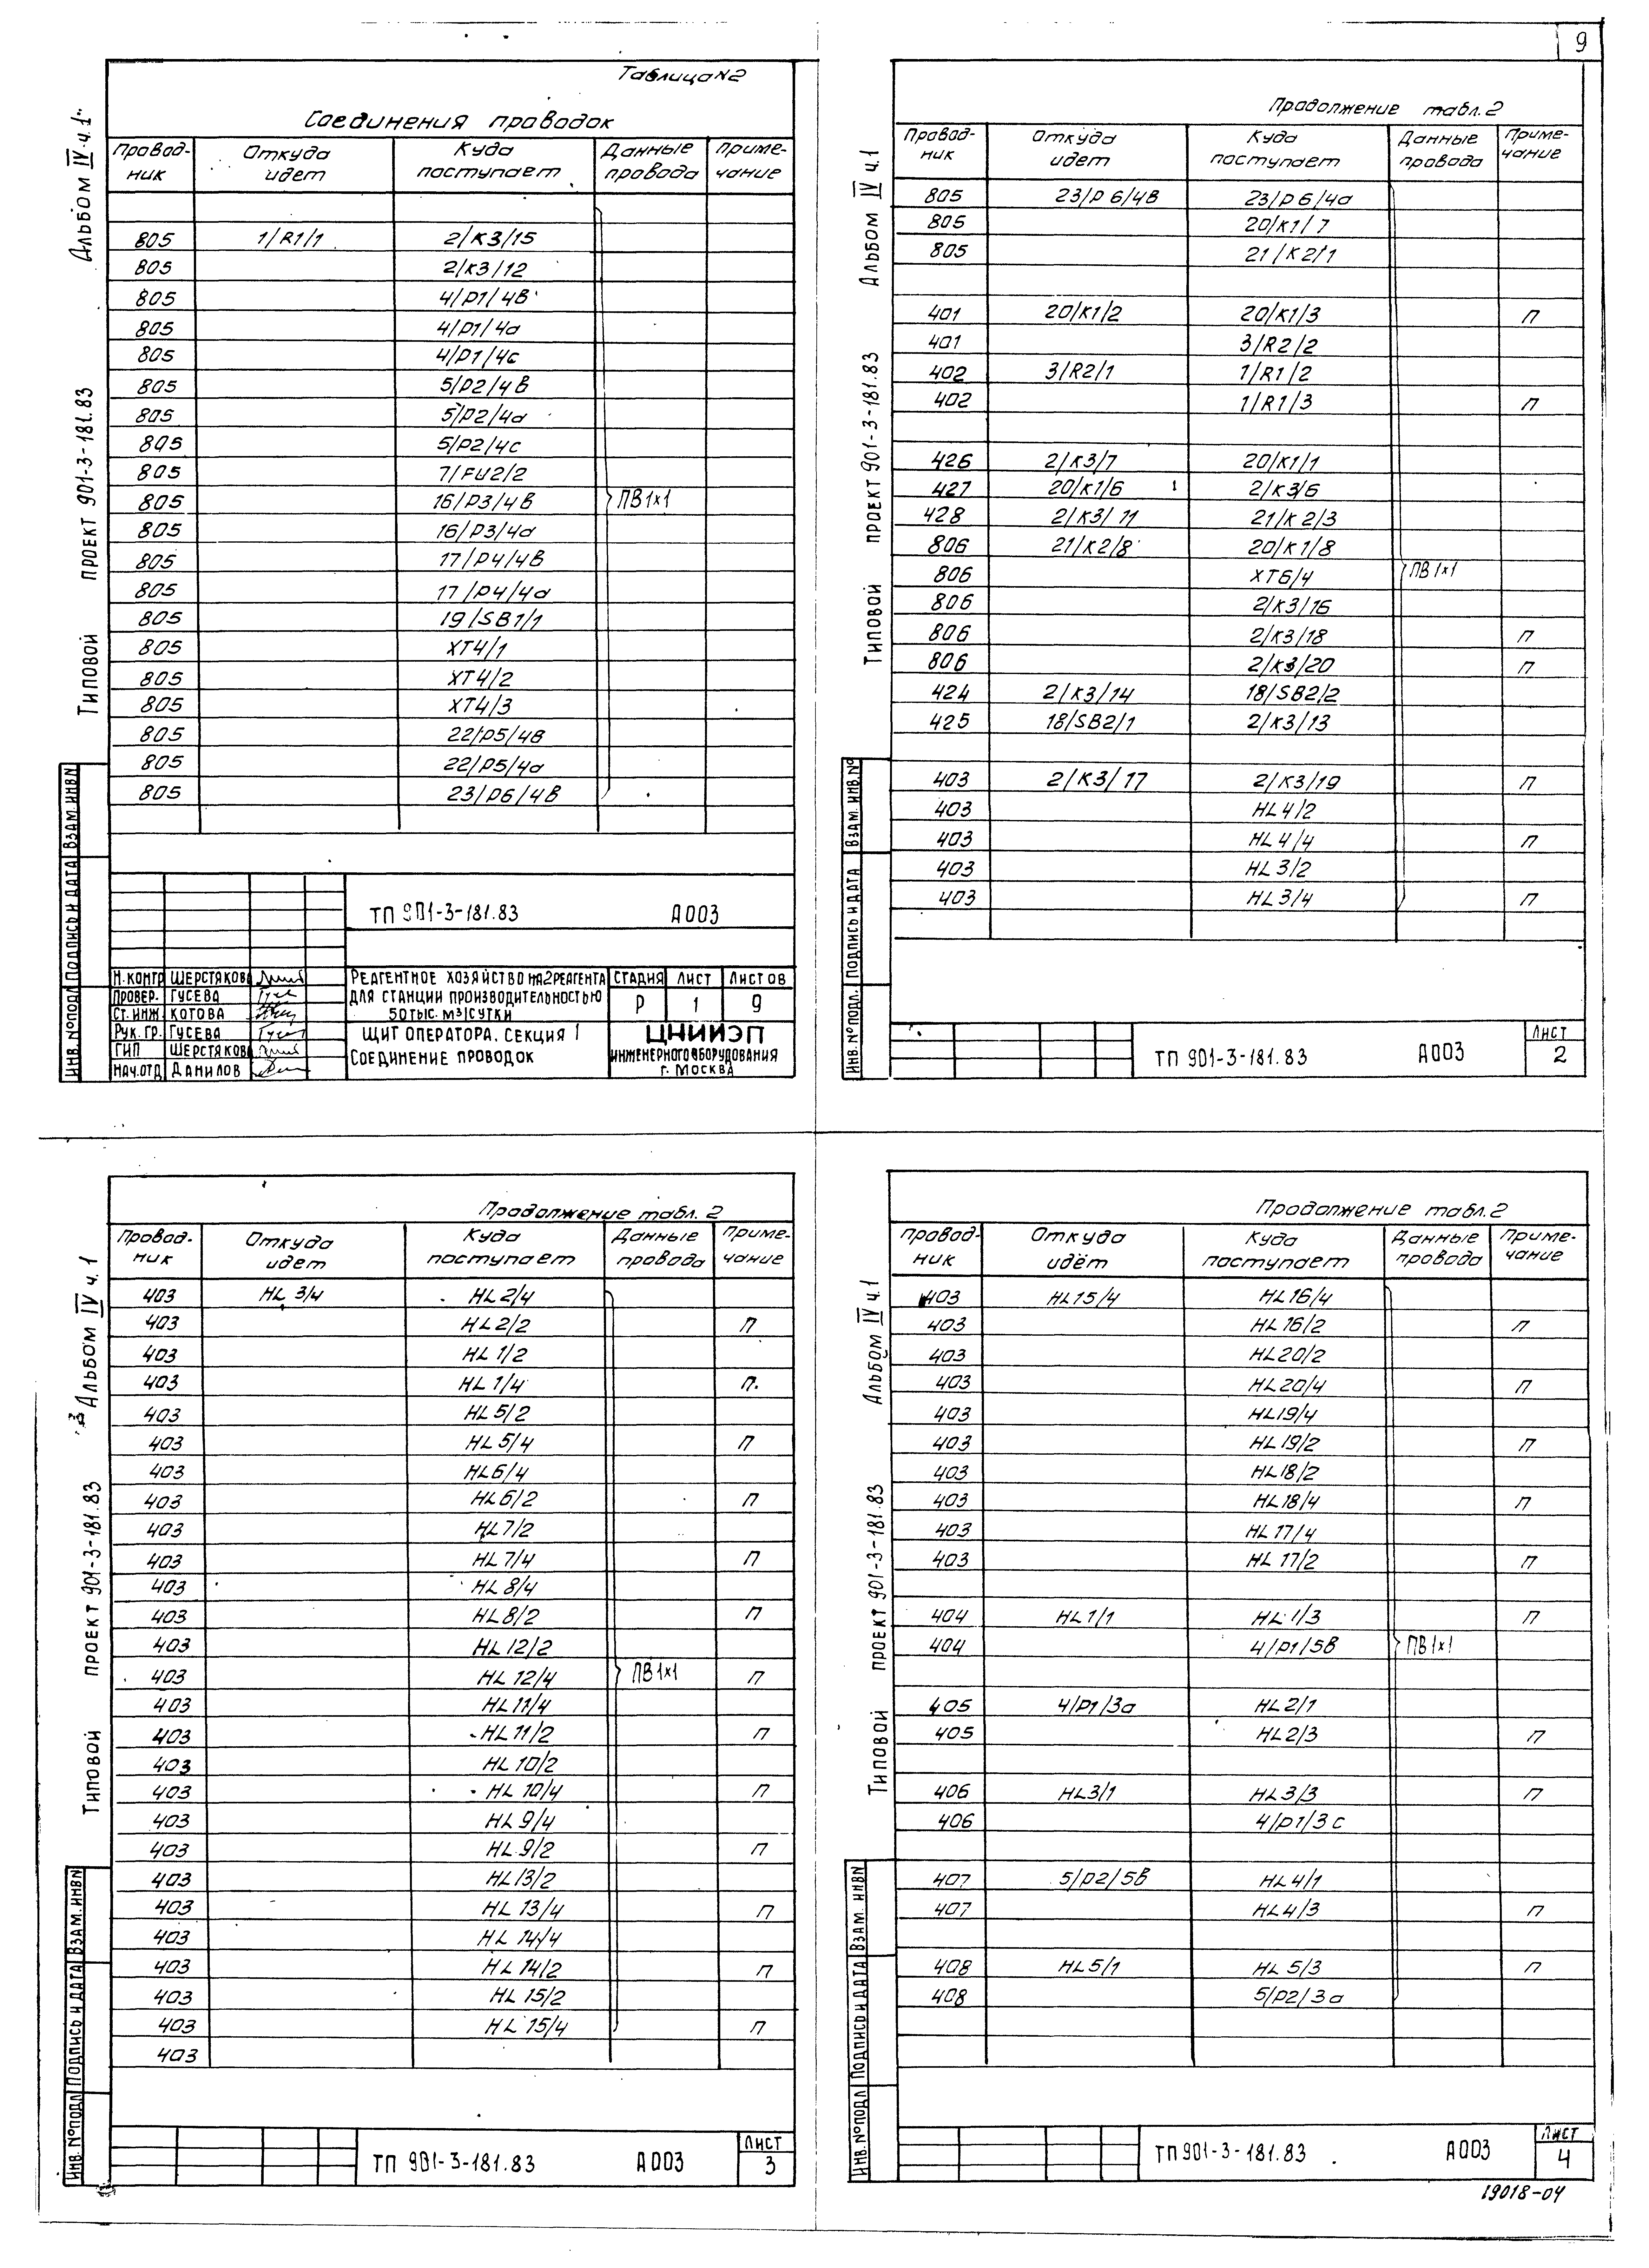 9
Альбом IV ч.1
Типовой проект 901-3-181.83
Таблица N2
Соединения проводок
Проводник Откуда идет Куда поступает Данные провода Примечание
805 1/R1/1 2/К3/15
805 2/К3/12
805 4/Р1/4В
805 4/Р1/4а
805 4/Р1/4с
805 5/Р2/4В
805 5/Р2/4а
805 5/Р2/4с
805 7/FU2/2
805 16/Р3/4В ПВ 1х1
805 16/Р3/4а
805 17/Р4/4В
805 17/Р4/4а
805 19/SB1/1
805 ХТ4/1
805 ХТ4/2
805 ХТ4/3
805 22/Р5/4В
805 22/Р5/4а
805 23/Р6/4В
ТП 901-3-181.83 А003
Н.контр Шерстякова
Провер. Гусева
Ст.инж. Котова
Рук. гр. Гусева
ГИП Шерстякова
Нач.отд Данилов
Реагентное хозяйство на 2 реагента
для станции производительностью
50 тыс. м3/сутки
Стадия Лист Листов
Р 1 9
Щит оператора. Секция 1
Соединение проводок
ЦНИИЭП
инженерного оборудования
г. Москва
Инв. №подл Подпись и дата Взам. инв N
Альбом IV ч.1
Типовой проект 901-3-181.83
Продолжение табл. 2
Проводник Откуда идет Куда поступает Данные провода Примечание
805 23/Р6/4В 23/Р6/4а
805 20/К1/7
805 21/К2/1
401 20/К1/2 20/К1/3 П
401 3/R2/2
402 3/R2/1 1/R1/2
402 1/R1/3 П
426 2/К3/7 20/К1/1
427 20/К1/6 2/К3/6
428 2/К3/11 21/К2/3
806 21/К2/8 20/К1/8
806 ХТ6/4 ПВ 1х1
806 2/К3/16
806 2/К3/18 П
806 2/К3/20 П
424 2/К3/14 18/SB2/2
425 18/SB2/1 2/К3/13
403 2/К3/17 2/К3/19 П
403 HL4/2
403 HL4/4 П
403 HL3/2
403 HL3/4 П
ТП 901-3-181.83 А003
Лист
2
Инв. №подл. Подпись и дата Взам. инв. №
Альбом IV ч.1
Типовой проект 901-3-181.83
Продолжение табл. 2
Проводник Откуда идет Куда поступает Данные провода Примечание
403 HL 3/4 HL2/4
403 HL2/2 П
403 HL 1/2
403 HL 1/4 П.
403 HL 5/2
403 HL5/4 П
403 HL6/4
403 HL6/2 П
403 HL7/2
403 HL7/4 П
403 HL 8/4
403 HL8/2 П
403 HL 12/2
403 HL 12/4 ПВ 1х1 П
403 HL11/4
403 HL11/2 П
403 HL 10/2
403 HL 10/4 П
403 HL 9/4
403 HL 9/2 П
403 HL13/2
403 HL 13/4 П
403 HL 14/4
403 HL 14/2 П
403 HL 15/2
403 HL 15/4 П
403
ТП 901-3-181.83 А003
Лист
3
Инв. №подл Подпись и дата Взам. инв N
Альбом IV ч.1
Типовой проект 901-3-181.83
Продолжение табл. 2
Проводник Откуда идёт Куда поступает Данные провода Примечание
403 HL15/4 HL16/4
403 HL 16/2 П
403 HL20/2
403 HL20/4 П
403 HL19/4
403 HL19/2 П
403 HL18/2
403 HL18/4 П
403 HL17/4
403 HL 17/2 П
404 HL1/1 HL 1/3 П
404 4/Р1/5В ПВ 1х1
405 4/Р1/3а HL2/1
405 HL2/3 П
406 HL3/1 HL3/3 П
406 4/Р1/3с
407 5/Р2/5В HL4/1
407 HL4/3 П
408 HL5/1 HL 5/3 П
408 5/Р2/3а
ТП 901-3-181.83 А003
Лист
4
Инв. №подл Подпись и дата Взам. инв N
19018-04